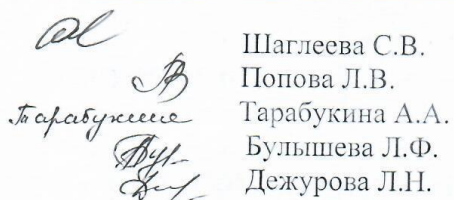 Шаглеева С.В.
Попова Л.В.
Тарабукина Тарабукина А.А.
Булышева Л.Ф.
Дежурова Л.Н.